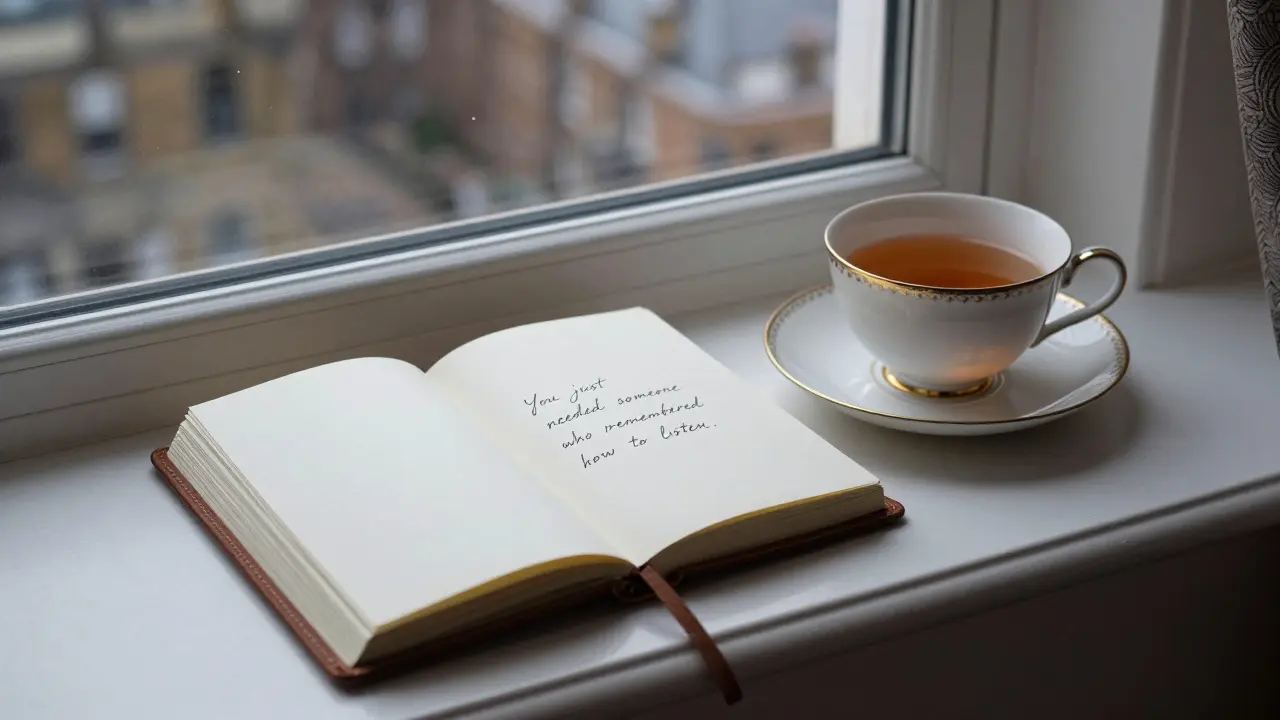 You just
needed someone
who remembered
how to listen.